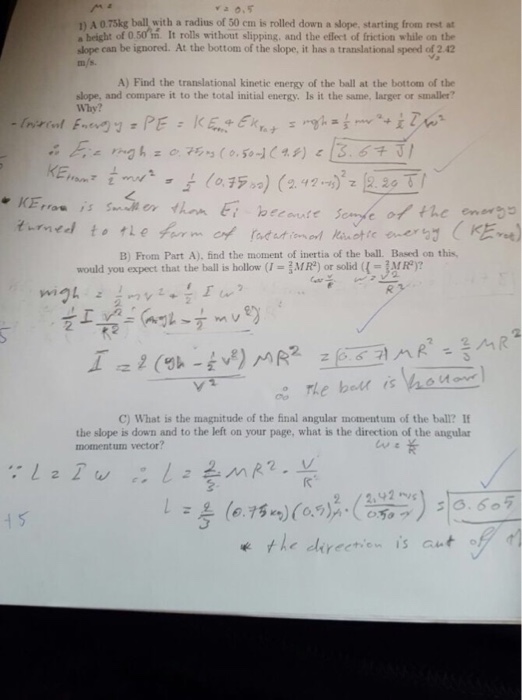 r = 0.5
1) A 0.75kg ball with a radius of 50 cm is rolled down a slope, starting from rest at
a height of 0.50 m. It rolls without slipping, and the effect of friction while on the
slope can be ignored. At the bottom of the slope, it has a translational speed of 2.42
m/s.
A) Find the translational kinetic energy of the ball at the bottom of the
slope, and compare it to the total initial energy. Is it the same, larger or smaller?
Why?
- Initial Energy = PE = KE + EKrot = mgh = ½ mv² + ½ I ω²
∴ Ei = mgh = 0.75 (0.50) (9.8) = 3.67 J
KEtrans = ½ mv² = ½ (0.75) (2.42)² = 2.20 J
• KEtran is smaller than Ei because some of the energy
turned to the form of rotational kinetic energy (KErot)
B) From Part A), find the moment of inertia of the ball. Based on this,
would you expect that the ball is hollow (I = ⅔MR²) or solid (I = ⅖MR²)?
mgh = ½ mv² + ½ I ω²
½ I v²/R² = (mgh - ½ mv²)
I = 2 (gh - ½ v²) MR² / v² = 0.67 MR² = ⅔ MR²
∴ The ball is hollow
C) What is the magnitude of the final angular momentum of the ball? If
the slope is down and to the left on your page, what is the direction of the angular
momentum vector?
ω = v/R
∵ L = I ω ∴ L = ⅔ MR² · V/R
L = ⅔ (0.75 kg) (0.5)² · (2.42 m/s / 0.50) = 0.605
+5
* the direction is out of